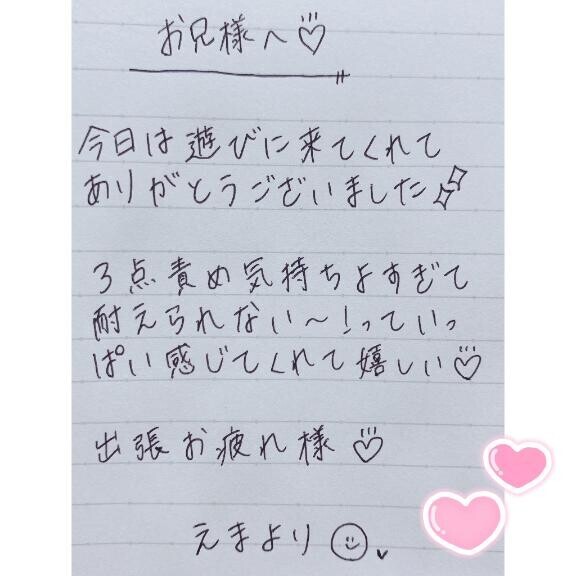 お兄様へ♡
今日は遊びに来てくれて
ありがとうございました
3点責め気持ちよすぎて
耐えられない〜!っていっ
ぱい感じてくれて嬉しい♡
出張お疲れ様♡
えまより